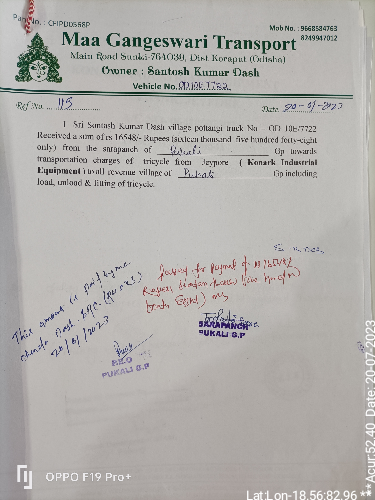 Pan No. : CHPD0568P
Mob No. : 9668584763
8249947012
Maa Gangeswari Transport
Main Road Sunki-764039, Dist Koraput (Odisha)
Owner : Santosh Kumar Dash
Vehicle No. OD10E 7722
Ref No. 115
Date 20-1-2023
I Sri Santosh Kumar Dash village pottangi truck No OD 10E/7722
Received a sum of rs 16548/- Rupees (sixteen thousand five hundred forty-eight
only) from the sarapanch of Pukali Gp towards
transportation charges of tricycle from Jeypore ( Konark Industrial
Equipment ) to all revenue village of Pukali Gp including
load, unload & fitting of tricycle.
This amount is paid by me
20/1/2023
P.E.O
PUKALI G.P
passed for payment of Rs 16548/-
Rupees
SARAPANCH
PUKALI G.P
OPPO F19 Pro+
Lat:Lon-18.56:82.96 ***Acur:52.40 Date: 20-07-2023